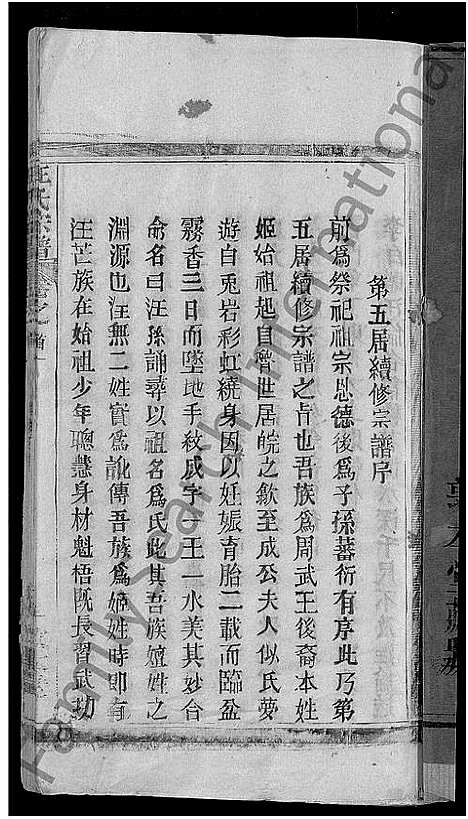 第五居續修宗譜序
前爲祭祀祖宗恩德後爲子孫蕃衍有序此乃第
五居續修宗譜之旨也吾族爲周武王後裔本姓
姬始祖起自魯世居皖之歙至成公夫人似氏夢
遊自兎岩彩虹繞身因以妊娠育胎二載而臨盆
霧香三日而墜地手紋成字一王一水美其妙合
命名曰汪孫誦尋以祖名爲氏此其吾族嬗姓之
淵源也汪無二姓實爲訛傳吾族爲姬姓時即有
汪芒族在始祖少年聰慧身材魁梧既長習武功
汪氏宗譜
卷之首
Family Search International